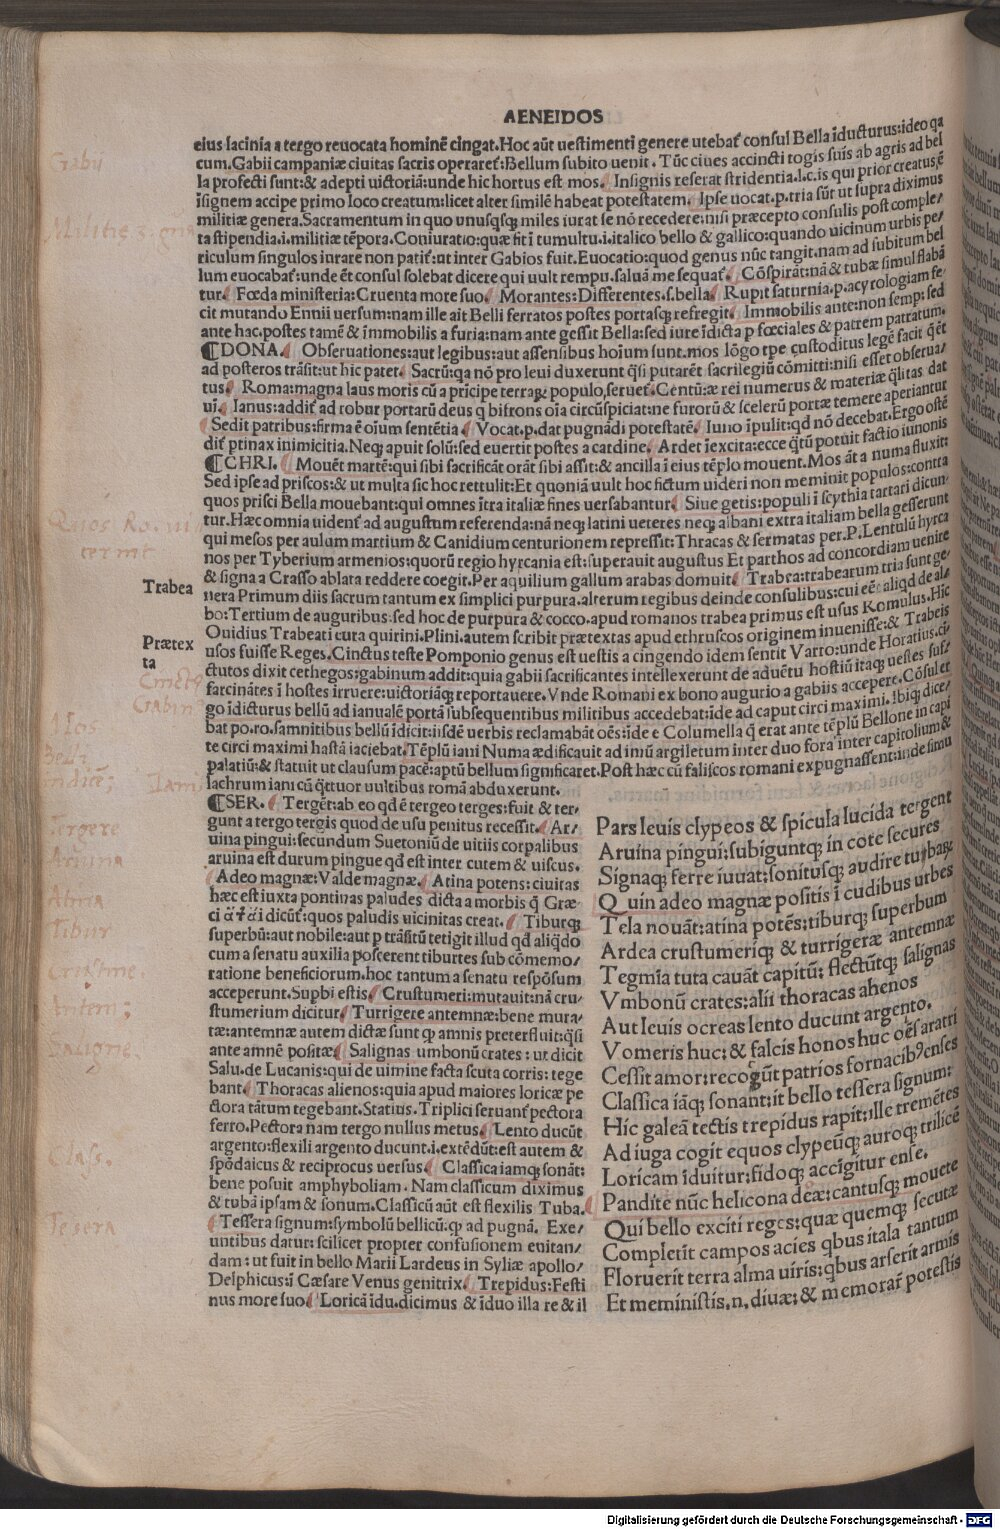 AENEIDOS
eius lacinia a tergo reuocata hominē cingat. Hoc aūt uestimenti genere utebat consul Bella īducturus: ideo qa
cum. Gabii campaniæ ciuitas sacris operaret: Bellum subito uenit. Tūc ciues accincti togis suis ab agris ad bel
la profecti sunt: & adepti uictoriā: unde hic hortus est mos. Insignis reserat stridentia. l. c. is qui prior creatus ē
īsignem accipe primo loco creatum: licet alter similē habeat potestatem. Ipse uocat. p. tria sūt ut supra diximus
militiæ genera. Sacramentum in quo unusqsq; miles iurat se nō recedere: nisi præcepto consulis post comple/
ta stipendia. i. militiæ tēpora. Coniuratio: quæ fit ī tumultu. i. italico bello & gallico: quando uicinum urbis pe/
riculum singulos iurare non patit: ut inter Gabios fuit. Euocatio: quod genus nūc tangit. nam ad subitum bel
lum euocabat: unde ēt consul solebat dicere qui uult rempu. saluā me sequat. Cōspirāt: nā & tubæ simul flabā
tur. Fœda ministeria: Cruenta more suo. Morantes: Differentes. s. bella. Rupit saturnia. p. acyrologiam fe/
cit mutando Ennii uersum: nam ille ait Belli ferratos postes portasq; refregit. Immobilis ante: non semp: sed
ante hac. postes tamē & īmmobilis a furia: nam ante gessit Bella: sed iure īdicta p fœciales & patrem patratum.
DONA. Obseruationes: aut legibus: aut assensibus hoīum sunt. mos lōgo tpe custoditus legē facit qēt
ad posteros trāsit: ut hic patet. Sacrū: qa nō pro leui duxerunt qsi putarēt sacrilegiū cōmitti: nisi esset obserua/
tus. Roma: magna laus moris cū a pricipe terrar; populo, seruet. Centū: æ rei numerus & materiæ qlitas dat
uī. Ianus: addit ad robur portarū deus q bifrons oīa circūspiciat: ne furorū & scelerū portæ temere aperiantur
Sedit patribus: firma ē oīum sentētia. Vocat. p. dat pugnādi potestatē. Iuno īpulit: qd nō decebat. Ergo ostē
dit ptinax inimicitia. Neq; apuit solū: sed euertit postes a cardine. Ardet īexcita: ecce qtū potuit factio iunonis
CHRI. Mouēt martē: qui sibi sacrificāt orāt sibi assit: & ancilla ī eius tēplo mouent. Mos āt a numa fluxit:
Sed ipse ad priscos: & ut multa sic hoc rettulit: Et quoniā uult hoc fictum uideri non meminit populos: contra
quos prisci Bella mouebant: qui omnes ītra italiæ fines uersabantur. Siue getis: populi ī scythia tartari dicun/
tur. Hæc omnia uident ad augustum referenda: nā neq; latini ueteres neq; albani extra italiam bella gesserunt
qui mesos per aulum martium & Canidium centurionem repressit: Thracas & sermatas per. P. Lentulū hyrca
nos per Tyberium armenios: quorū regio hyrcania est: superauit augustus Et parthos ad concordiam uenire
& signa a Crasso ablata reddere coegit. Per aquilium gallum arabas domuit. Trabea: trabearum tria sunt ge/
nera Primum diis sacrum tantum ex simplici purpura. alterum regibus deinde consulibus: cui eē aliqd de al/
bo: Tertium de auguribus: sed hoc de purpura & cocco. apud romanos trabea primus est usus Romulus. Hic
Ouidius Trabeati cura quirini. Plini. autem scribit prætextas apud ethruscos originem inuenisse: & Trabeis
usos fuisse Reges. Cinctus teste Pomponio genus est uestis a cingendo idem sentit Varro: unde Horatius. ci/
ctutos dixit cethegos: gabinum addit: quia gabii sacrificantes intellexerunt de aduētu hostiū itaq; uestes suf/
farcinātes ī hostes irruere: uictoriāq; reportauere. Vnde Romani ex bono augurio a gabiis accepere. Cōsul er
go idicturus bellū ad ianualē portā subsequentibus militibus accedebat: īde ad caput circi maximi. Ibiq; dice/
bat po. ro. samnitibus bellū īdicit: iisdē uerbis reclamabāt oēs: īde e Columella q erat ante tēplū Bellone in capi
te circi maximi hastā iaciebat. Tēplū iani Numa ædificauit ad imū argiletum inter duo fora inter capitolium &
palatiū: & statuit ut clausum pacē: aptū bellum significaret. Post hæc cū faliscos romani expugnassent: inde simu
lachrum iani cū qttuor uultibus romā abduxerunt.
SER. Tergēt: ab eo qd ē tergeo terges: fuit & ter/
gunt a tergo tergis quod de usu penitus recessit. Ar/
uina pingui: secundum Suetoniū de uitiis corpalibus
aruina est durum pingue qd est inter cutem & uiscus.
Adeo magnæ: Valde magnæ. Atina potens: ciuitas
hæc est iuxta pontinas paludes dicta a morbis q Græ/
ci dicūt: quos paludis uicinitas creat. Tiburq;
superbū: aut nobile: aut p trāsitū tetigit illud qd aliqdo
cum a senatu auxilia poscerent tiburtes sub cōmemo/
ratione beneficiorum. hoc tantum a senatu respōsum
acceperunt. Supbi estis. Crustumeri: mutauit: nā cru/
stumerium dicitur. Turrigere antemnæ: bene mura/
tæ: antemnæ autem dictæ sunt qp amnis preterfluit: qsi
ante amnē positæ. Salignas umbonū crates: ut dicit
Salu. de Lucanis: qui de uimine facta scuta corris: tege
bant. Thoracas alienos: quia apud maiores loricæ pe
ctora tātum tegebant. Statius. Triplici seruant pectora
ferro. Pectora nam tergo nullus metus. Lento ducūt
argento: flexili argento ducunt. i. extēdūt: est autem &
spōdaicus & reciprocus uersus. Classica iamq; sonāt:
bene posuit amphyboliam. Nam classicum diximus
& tubā ipsam & sonum. Classicū aūt est flexilis Tuba.
Tessera signum: symbolū bellicū: qp ad pugnā. Exe/
untibus datur: scilicet propter confusionem euitan/
dam: ut fuit in bello Marii Lardeus in Syliæ apollo/
Delphicus: ī Cæsare Venus genitrix. Trepidus: Festi
nus more suo. Loricā idu. dicimus & īduo illa re & il
Pars leuis clypeos & spicula lucida tergent
Aruina pingui: subiguntq; in cote secures
Signaq; ferre iuuat: sonitusq; audire tubarz
Quin adeo magnæ positis ī cudibus urbes
Tela nouāt: atina potēs: tiburq; superbum
Ardea crustumeriq; & turrigeræ antemnæ
Tegmīa tuta cauāt capitū: flectūtq; salignas
Vmbonū crates: alii thoracas ahenos
Aut leuis ocreas lento ducunt argento.
Vomeris huc: & falcis honos huc oēs aratri
Cessit amor: recoqūt patrios fornacib9 enses
Classica iāq; sonant: it bello tessera signum:
Hic galeā tectis trepidus rapit: ille tremētes
Ad iuga cogit equos clypeūq; auroq; trilicē
Loricam īduitur: fidoq; accīgitur ense.
Pandite nūc helicona deæ: cantusq; mouete
Qui bello exciti reges: quæ quemq; secutæ
Complerīt campos acies qbus itala tantum
Floruerit terra alma uiris: qbus arserit armis
Et meministis. n. diuæ: & memorar potestis
Trabea
Prætex
ta
Gabii
Tergere
Aruina
Atina
Tibur
Antem;
Saligne.
Class.
Tesera
Digitalisierung gefördert durch die Deutsche Forschungsgemeinschaft - DFG